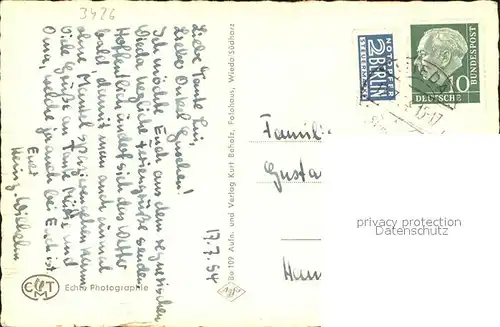 3426
Liebe Tante Lui,
Lieber Onkel Guschen!
Ich möchte Euch aus dem regnerischen
Wieda herzliche Feriengrüße senden.
Hoffentlich ändert sich das Wetter
bald damit man auch einmal
ohne Mantel spazierengehen kann.
Viele Grüße an Tante und
Oma, welche ja auch bei Euch ist
Euer
Heinz-Wilhelm
17.7.54
Bo 109 Aufn. und Verlag Kurt Beholz, Fotohaus, Wieda-Südharz
CMT
Echte Photographie
Agfa
NOTOPFER
2 BERLIN
STEUERMARKE
DEUTSCHE
BUNDESPOST
10
Famili
Gusta
Han
privacy protection
VEREINSREDAKTION.AT